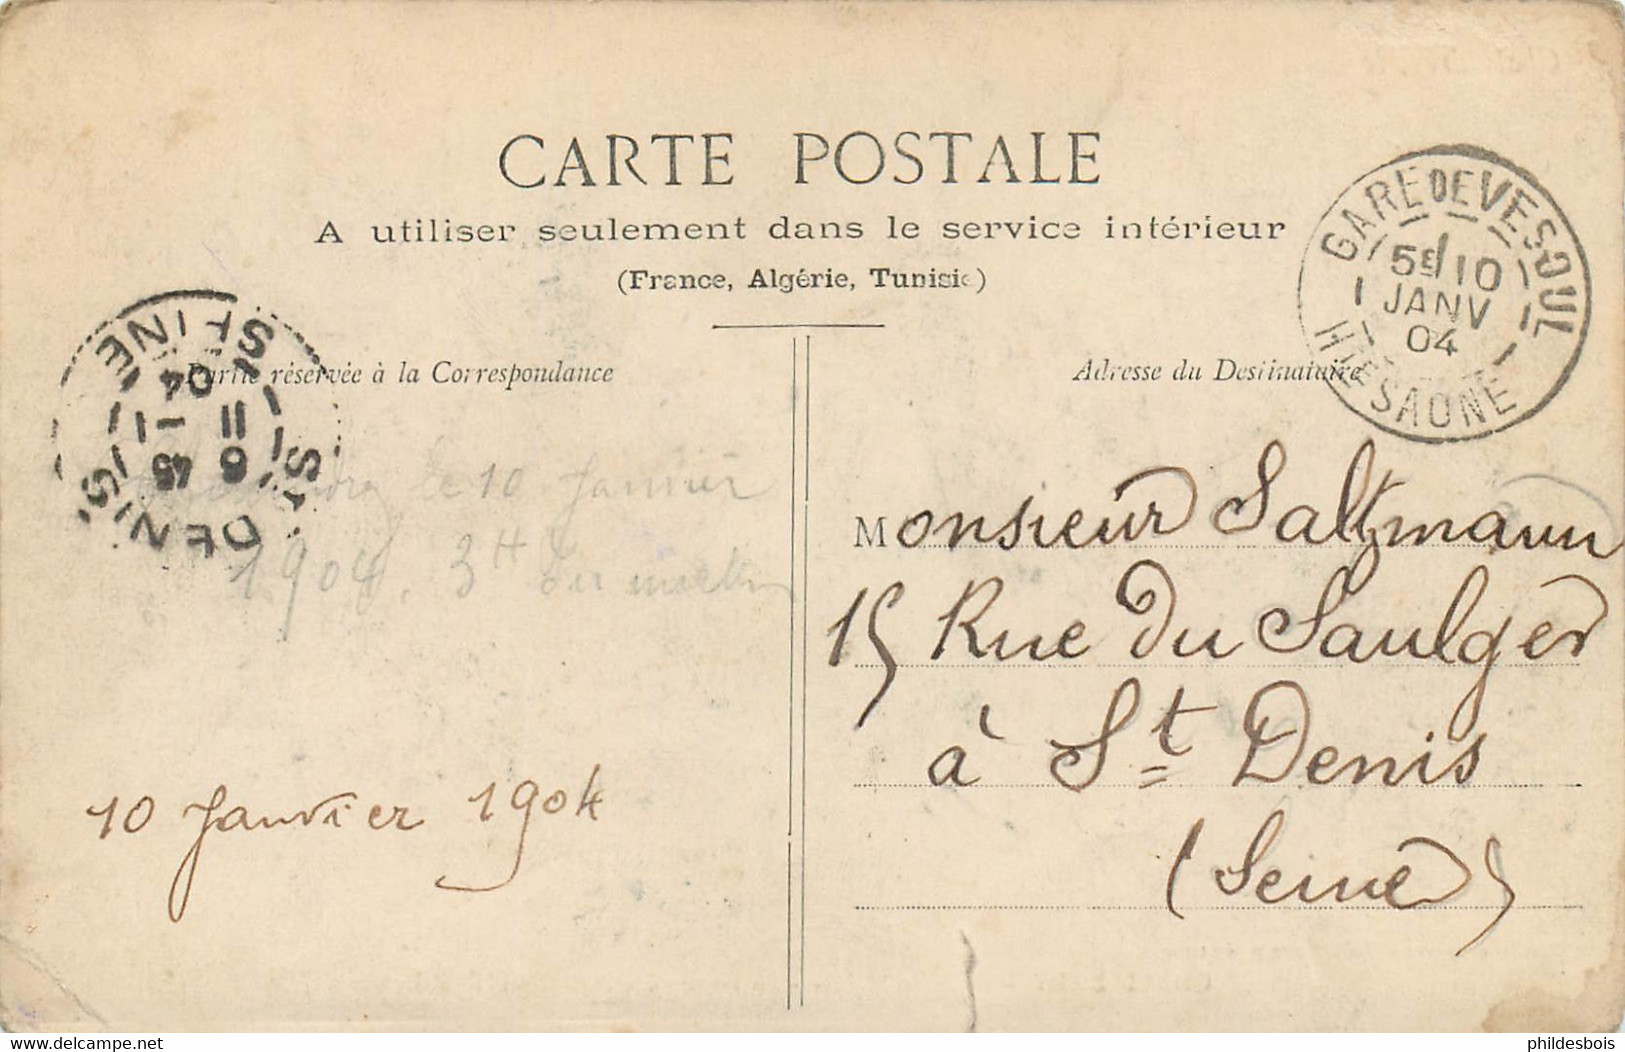 CARTE POSTALE
A utiliser seulement dans le service intérieur
(France, Algérie, Tunisie)
Partie réservée à la Correspondance
Adresse du Destinataire
GARE DE VESOUL
5E 10
JANV
04
HTE SAONE
ST DENIS
6 45
11 1
04
SEINE
le 10 Janvier
1904. 3H du matin
10 Janvier 1904
Monsieur Saltzmann
15 Rue du Saulger
à St Denis
(Seine)
www.delcampe.net
phildesbois